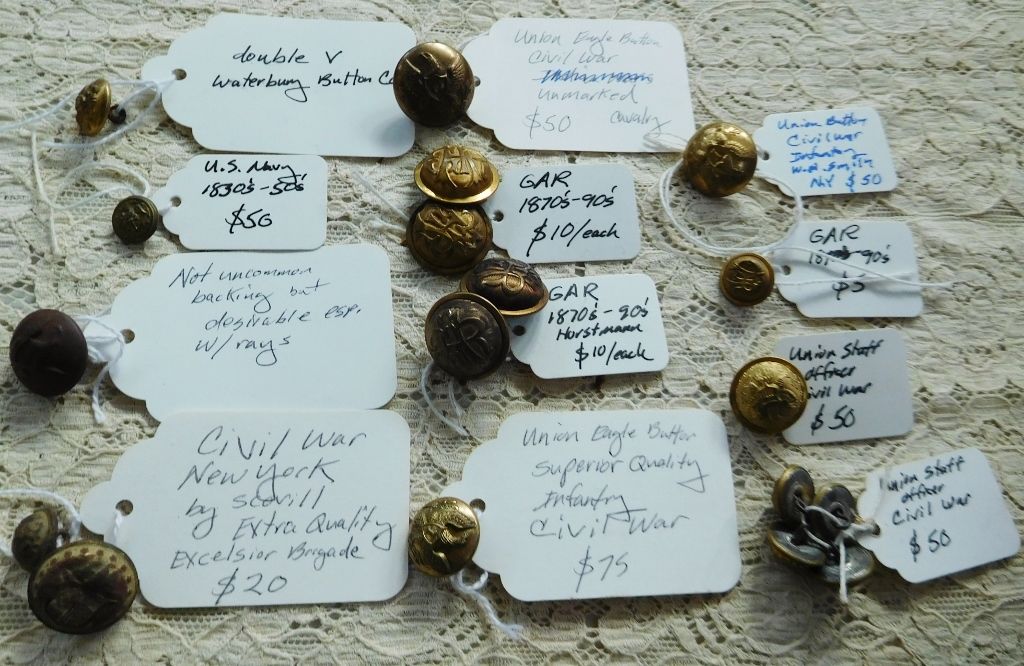 double V
Waterbury Button Co
Union Eagle Button
Civil War
Unmarked
$50 Cavalry
Union Button
Civil War
Infantry
NY $50
U.S. Navy
1830's-50's
$50
GAR
1870's-90's
$10/each
GAR
90's
$5
Not uncommon
backing but
desirable esp.
w/rays
GAR
1870's-90's
Horstmann
$10/each
Union Staff
officer
Civil War
$50
Civil War
New York
by Scovill
Extra Quality
Excelsior Brigade
$20
Union Eagle Button
Superior Quality
Infantry
Civil War
$75
Union Staff
officer
Civil War
$50